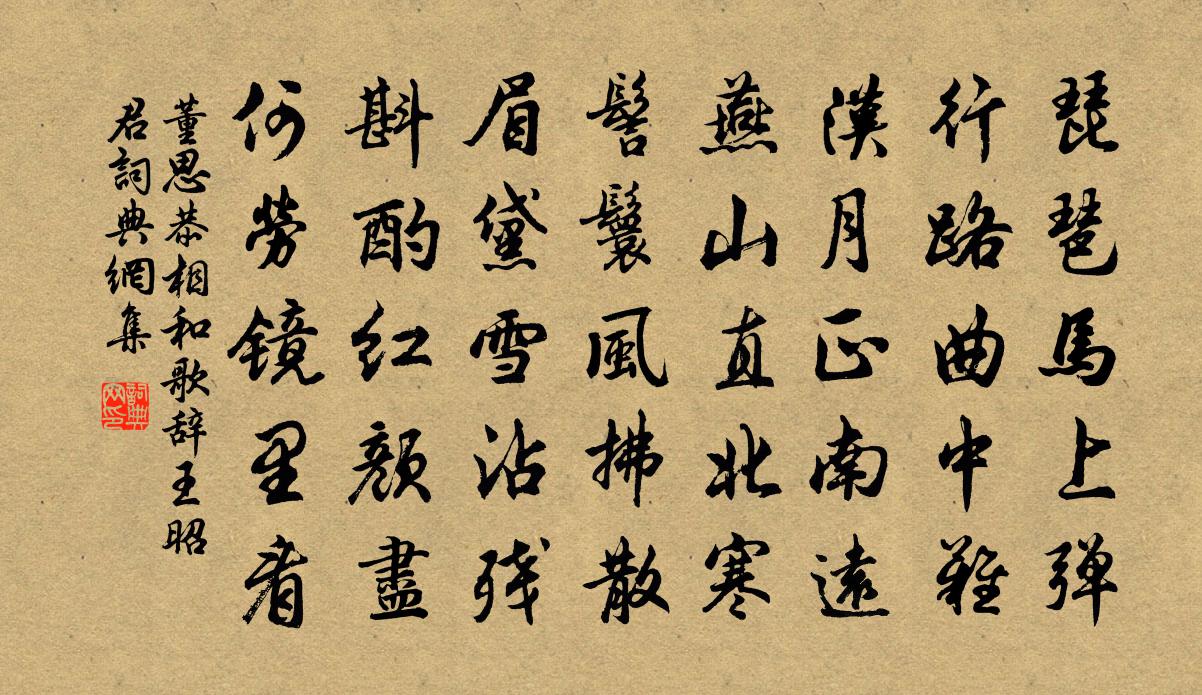 琵琶馬上弾
行路曲中難
漢月正南遠
燕山直北寒
髻鬟風拂散
眉黛雪沾残
斟酌红顔盡
何勞镜里看
董思恭相和歌辞王昭
君詞典網集
詞典网印